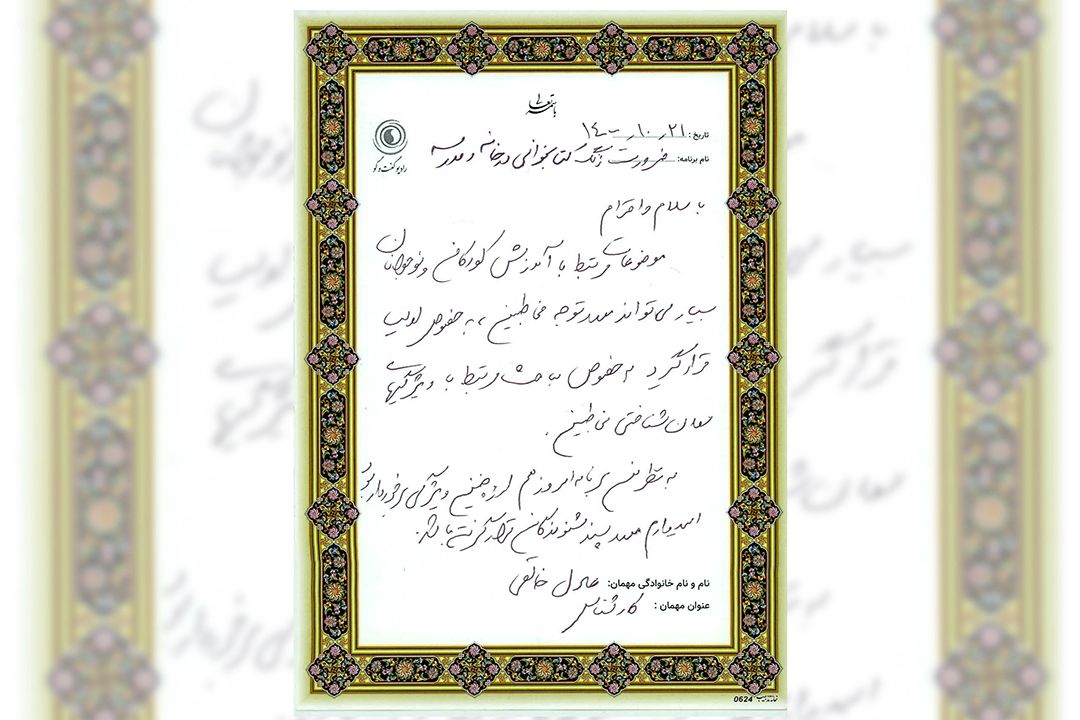 باسمه تعالی
تاریخ: ۱۴۰۰٫۱۰٫۲۱
رادیو گفت و گو
نام برنامه: ضرورت زنگ کتابخوانی در خانه و مدرسه
با سلام و احترام
موضوعات مرتبط با آموزش کودکان و نوجوانان
بسیار می‌تواند مورد توجه مخاطبین ، به خصوص اولیا
قرار گیرد به خصوص مباحث مرتبط با ویژگیهای
روان شناختی مخاطبین .
به نظر من برنامه امروز هم از چنین ویژگی برخوردار بود
امیدوارم مورد پسند شنوندگان قرار گرفته باشد.
نام و نام خانوادگی مهمان: عادل خالقی
عنوان مهمان : کارشناس
0624